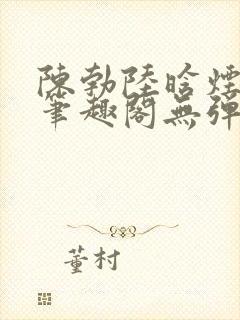 陳勃陸晗煙
筆趣閣無彈
董村